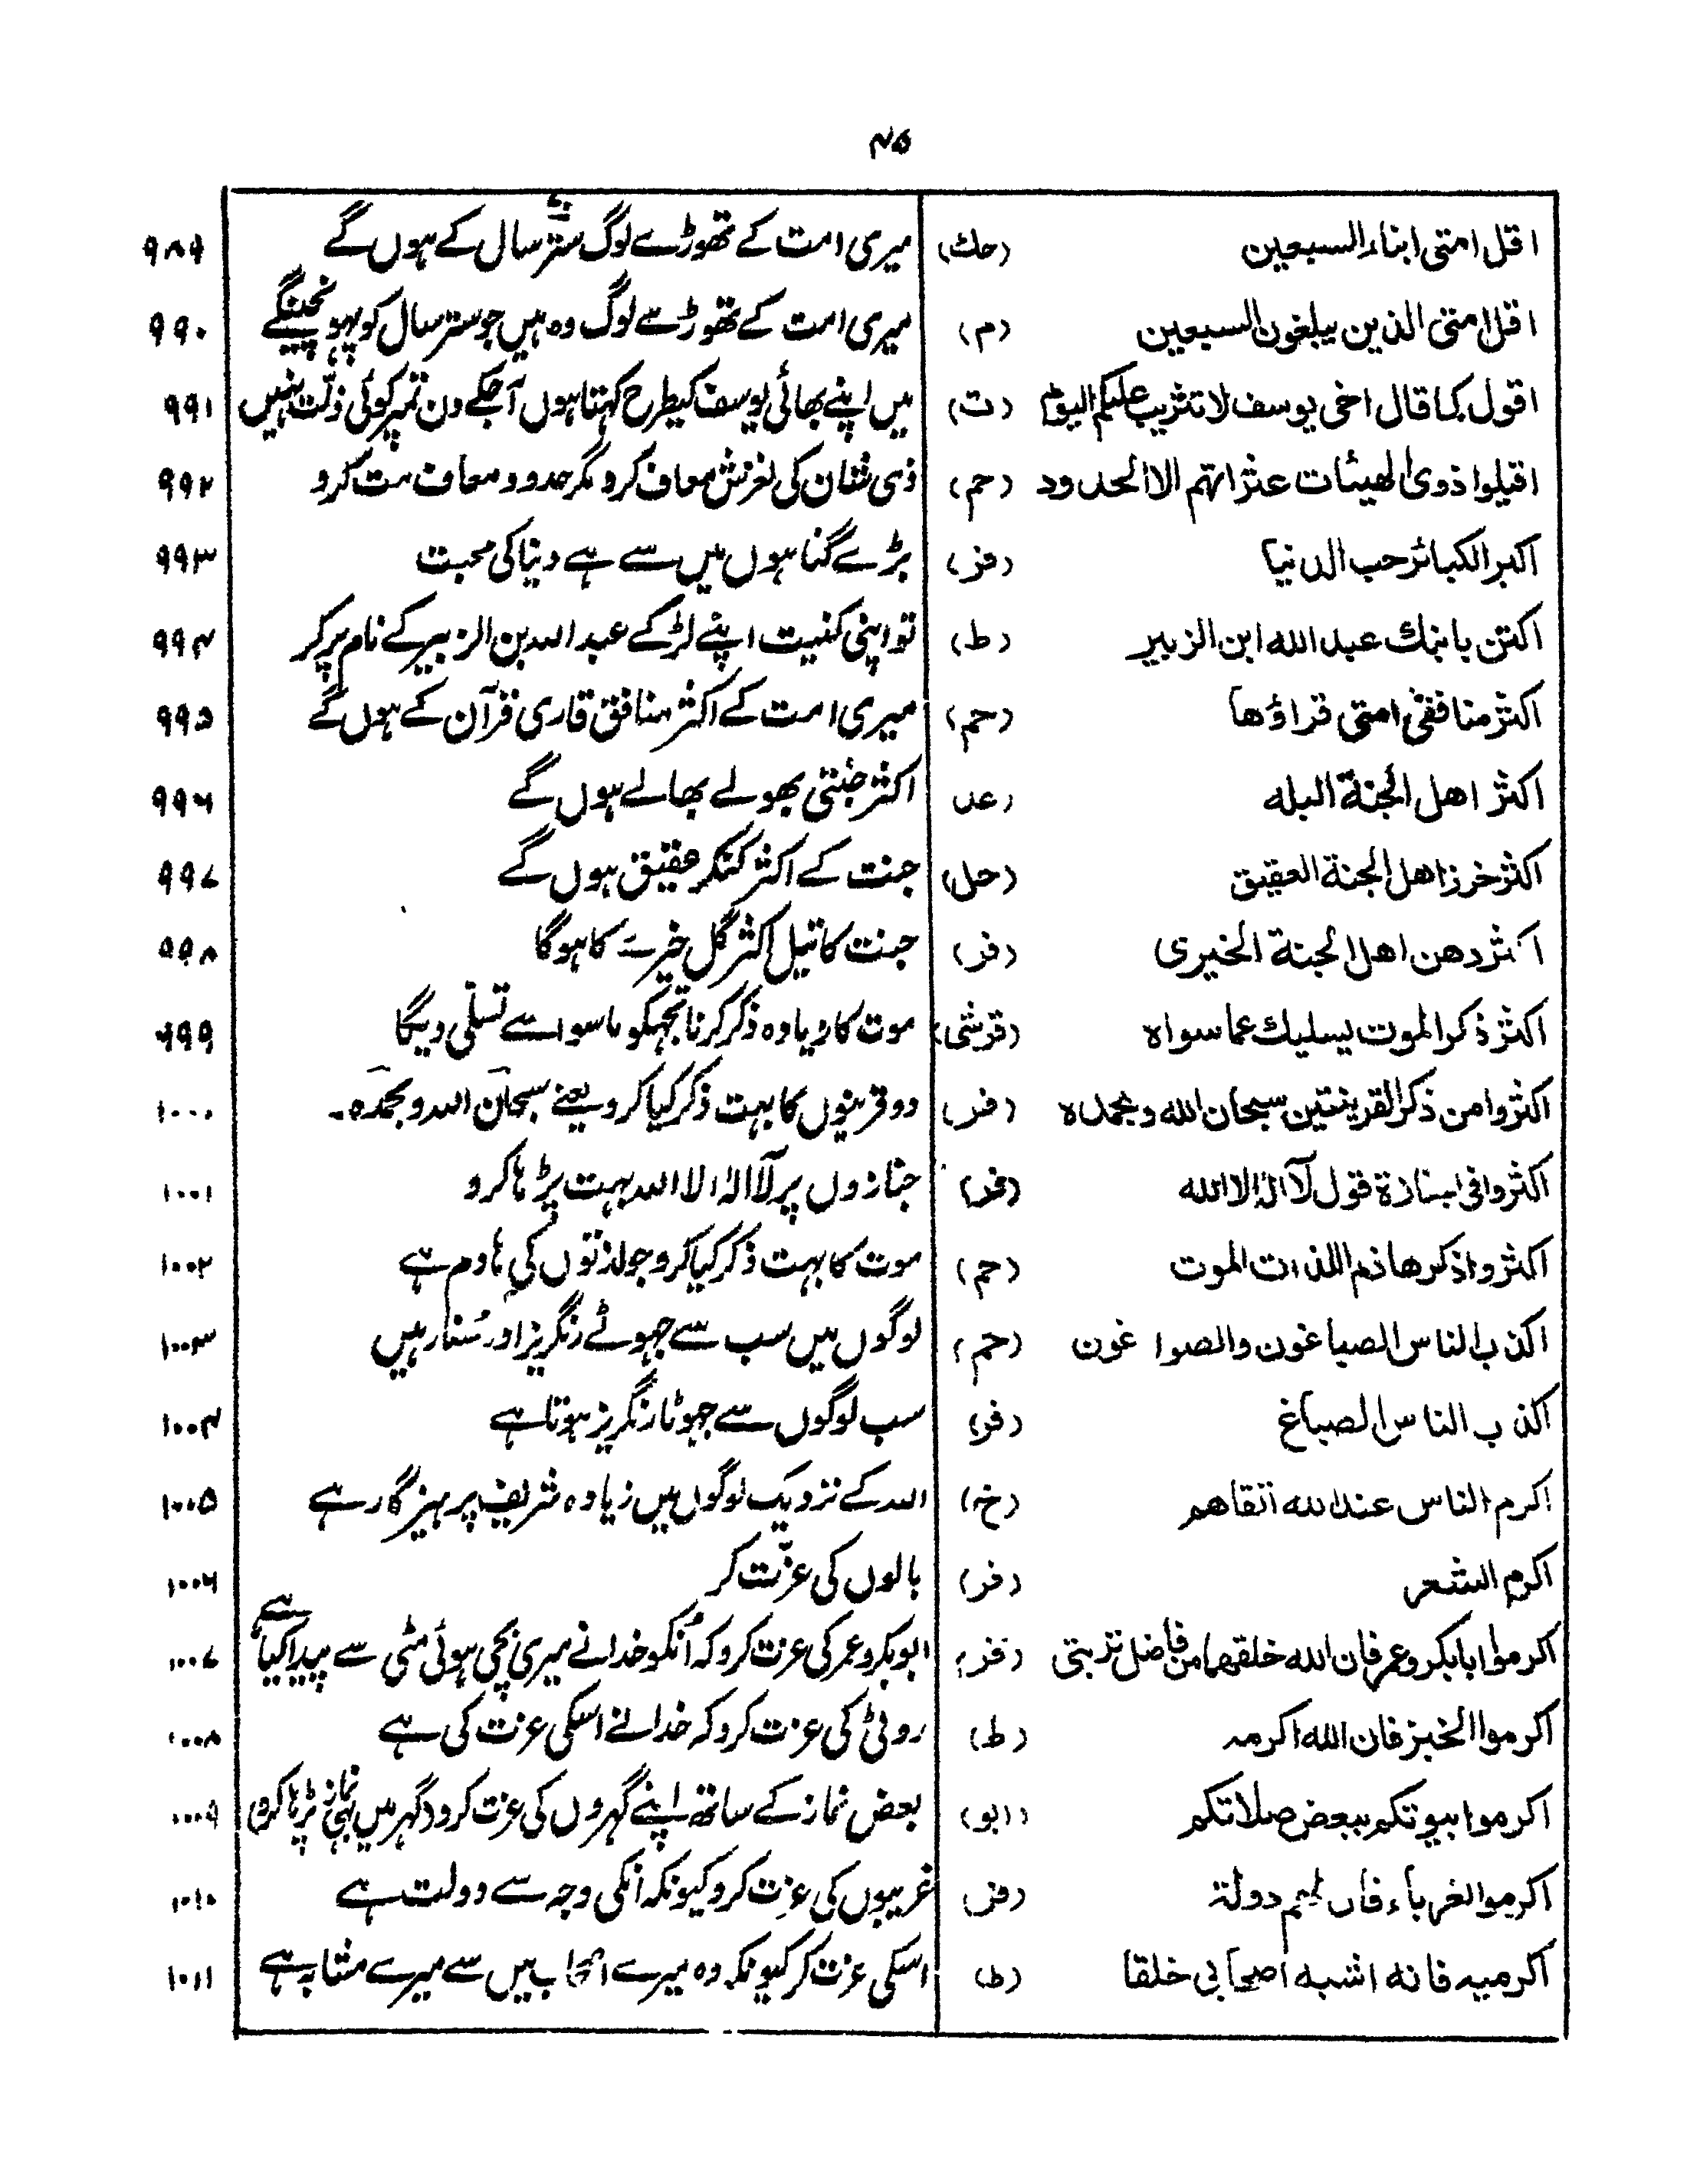 ۴۵
اقل امتی ابناء السبعین (حك) میری امت کے تھوڑے لوگ ستّر سال کے ہوں گے ۹۸۹
اقل امتی الذین یبلغون السبعین (م) میری امت کے تھوڑے لوگ وہ ہیں جو ستر سال کو پہونچینگے ۹۹۰
اقول کما قال اخی یوسف لا تثریب علیکم الیوم (ت) میں اپنے بھائی یوسف کیطرح کہتا ہوں آجکے دن تمپر کوئی ذلّت نہیں ۹۹۱
اقیلوا ذوی الهیئات عثراتهم الا الحدود (حم) ذی شان کی لغزش معاف کرو مگر حدود معاف مت کرو ۹۹۲
اکبر الکبائر حب الدنیا (فر) بڑے گناہوں میں سے ہے دنیا کی محبت ۹۹۳
اکتن بابنك عبد الله ابن الزبیر (ط) تو اپنی کنیت اپنے لڑکے عبد اللہ بن الزبیر کے نام پر کر ۹۹۴
اکثر منافقی امتی قراؤها (حم) میری امت کے اکثر منافق قاری قرآن کے ہوں گے ۹۹۵
اکثر اهل الجنة البله (عد اکثر جنتی بھولے بھالے ہوں گے ۹۹۶
اکثر خرز اهل الجنة العقیق (حل) جنت کے اکثر کنکر عقیق ہوں گے ۹۹۷
اکثر دهن اهل الجنة الخیری (فر) جنت کا تیل اکثر گل خیرے کا ہوگا ۹۹۸
اکثر ذکر الموت یسلیك عما سواه (قرشی) موت کا زیادہ ذکر کرنا تجہکو ماسوا سے تسلّی دیگا ۹۹۹
اکثروا من ذکر القرینتین سبحان الله وبحمده (فر) دو قرینوں کا بہت ذکر کیا کرو یعنے سبحان اللہ وبحمدہ۔ ۱۰۰۰
اکثروا فی الجنازة قول لآ اله الا الله (فر) جنازوں پر لآ الہ الا اللہ بہت پڑہا کرو ۱۰۰۱
اکثروا ذکر هاذم اللذات الموت (حم) موت کا بہت ذکر کیا کرو جو لذتوں کی ہادم ہے ۱۰۰۲
اکذب الناس الصباغون والصواغون (حم) لوگوں میں سب سے جہوٹے رنگریز اور سُنار ہیں ۱۰۰۳
اکذب الناس الصباغ (فر) سب لوگوں سے جہوٹا رنگریز ہوتا ہے ۱۰۰۴
اکرم الناس عند الله اتقاهم (خ) اللہ کے نزدیک لوگوں میں زیادہ شریف پرہیزگار ہے ۱۰۰۵
اکرم الشعر (فر) بالوں کی عزّت کر ۱۰۰۶
اکرموا ابابکر وعمر فان الله خلقهما من فاضل تربتی (فر) ابوبکر و عمر کی عزت کرو کہ اُنکو خدا نے میری بچی ہوئی مٹی سے پیدا کیا ہے ۱۰۰۷
اکرموا الخبز فان الله اکرمه (ط) روٹی کی عزت کرو کہ خدا نے اسکی عزت کی ہے ۱۰۰۸
اکرموا بیوتکم ببعض صلاتکم (ابو) بعض نماز کے ساتھ اپنے گہروں کی عزت کرو (گہر میں بہی نماز پڑہا کرو) ۱۰۰۹
اکرموا الغرباء فان لهم دولة (فر) غریبوں کی عزت کرو کیونکہ انکی وجہ سے دولت ہے ۱۰۱۰
اکرمیه فانه اشبه اصحابی خلقا (ط) اسکی عزت کر کیونکہ وہ میرے اصحاب میں سے میرے مشابہ ہے ۱۰۱۱